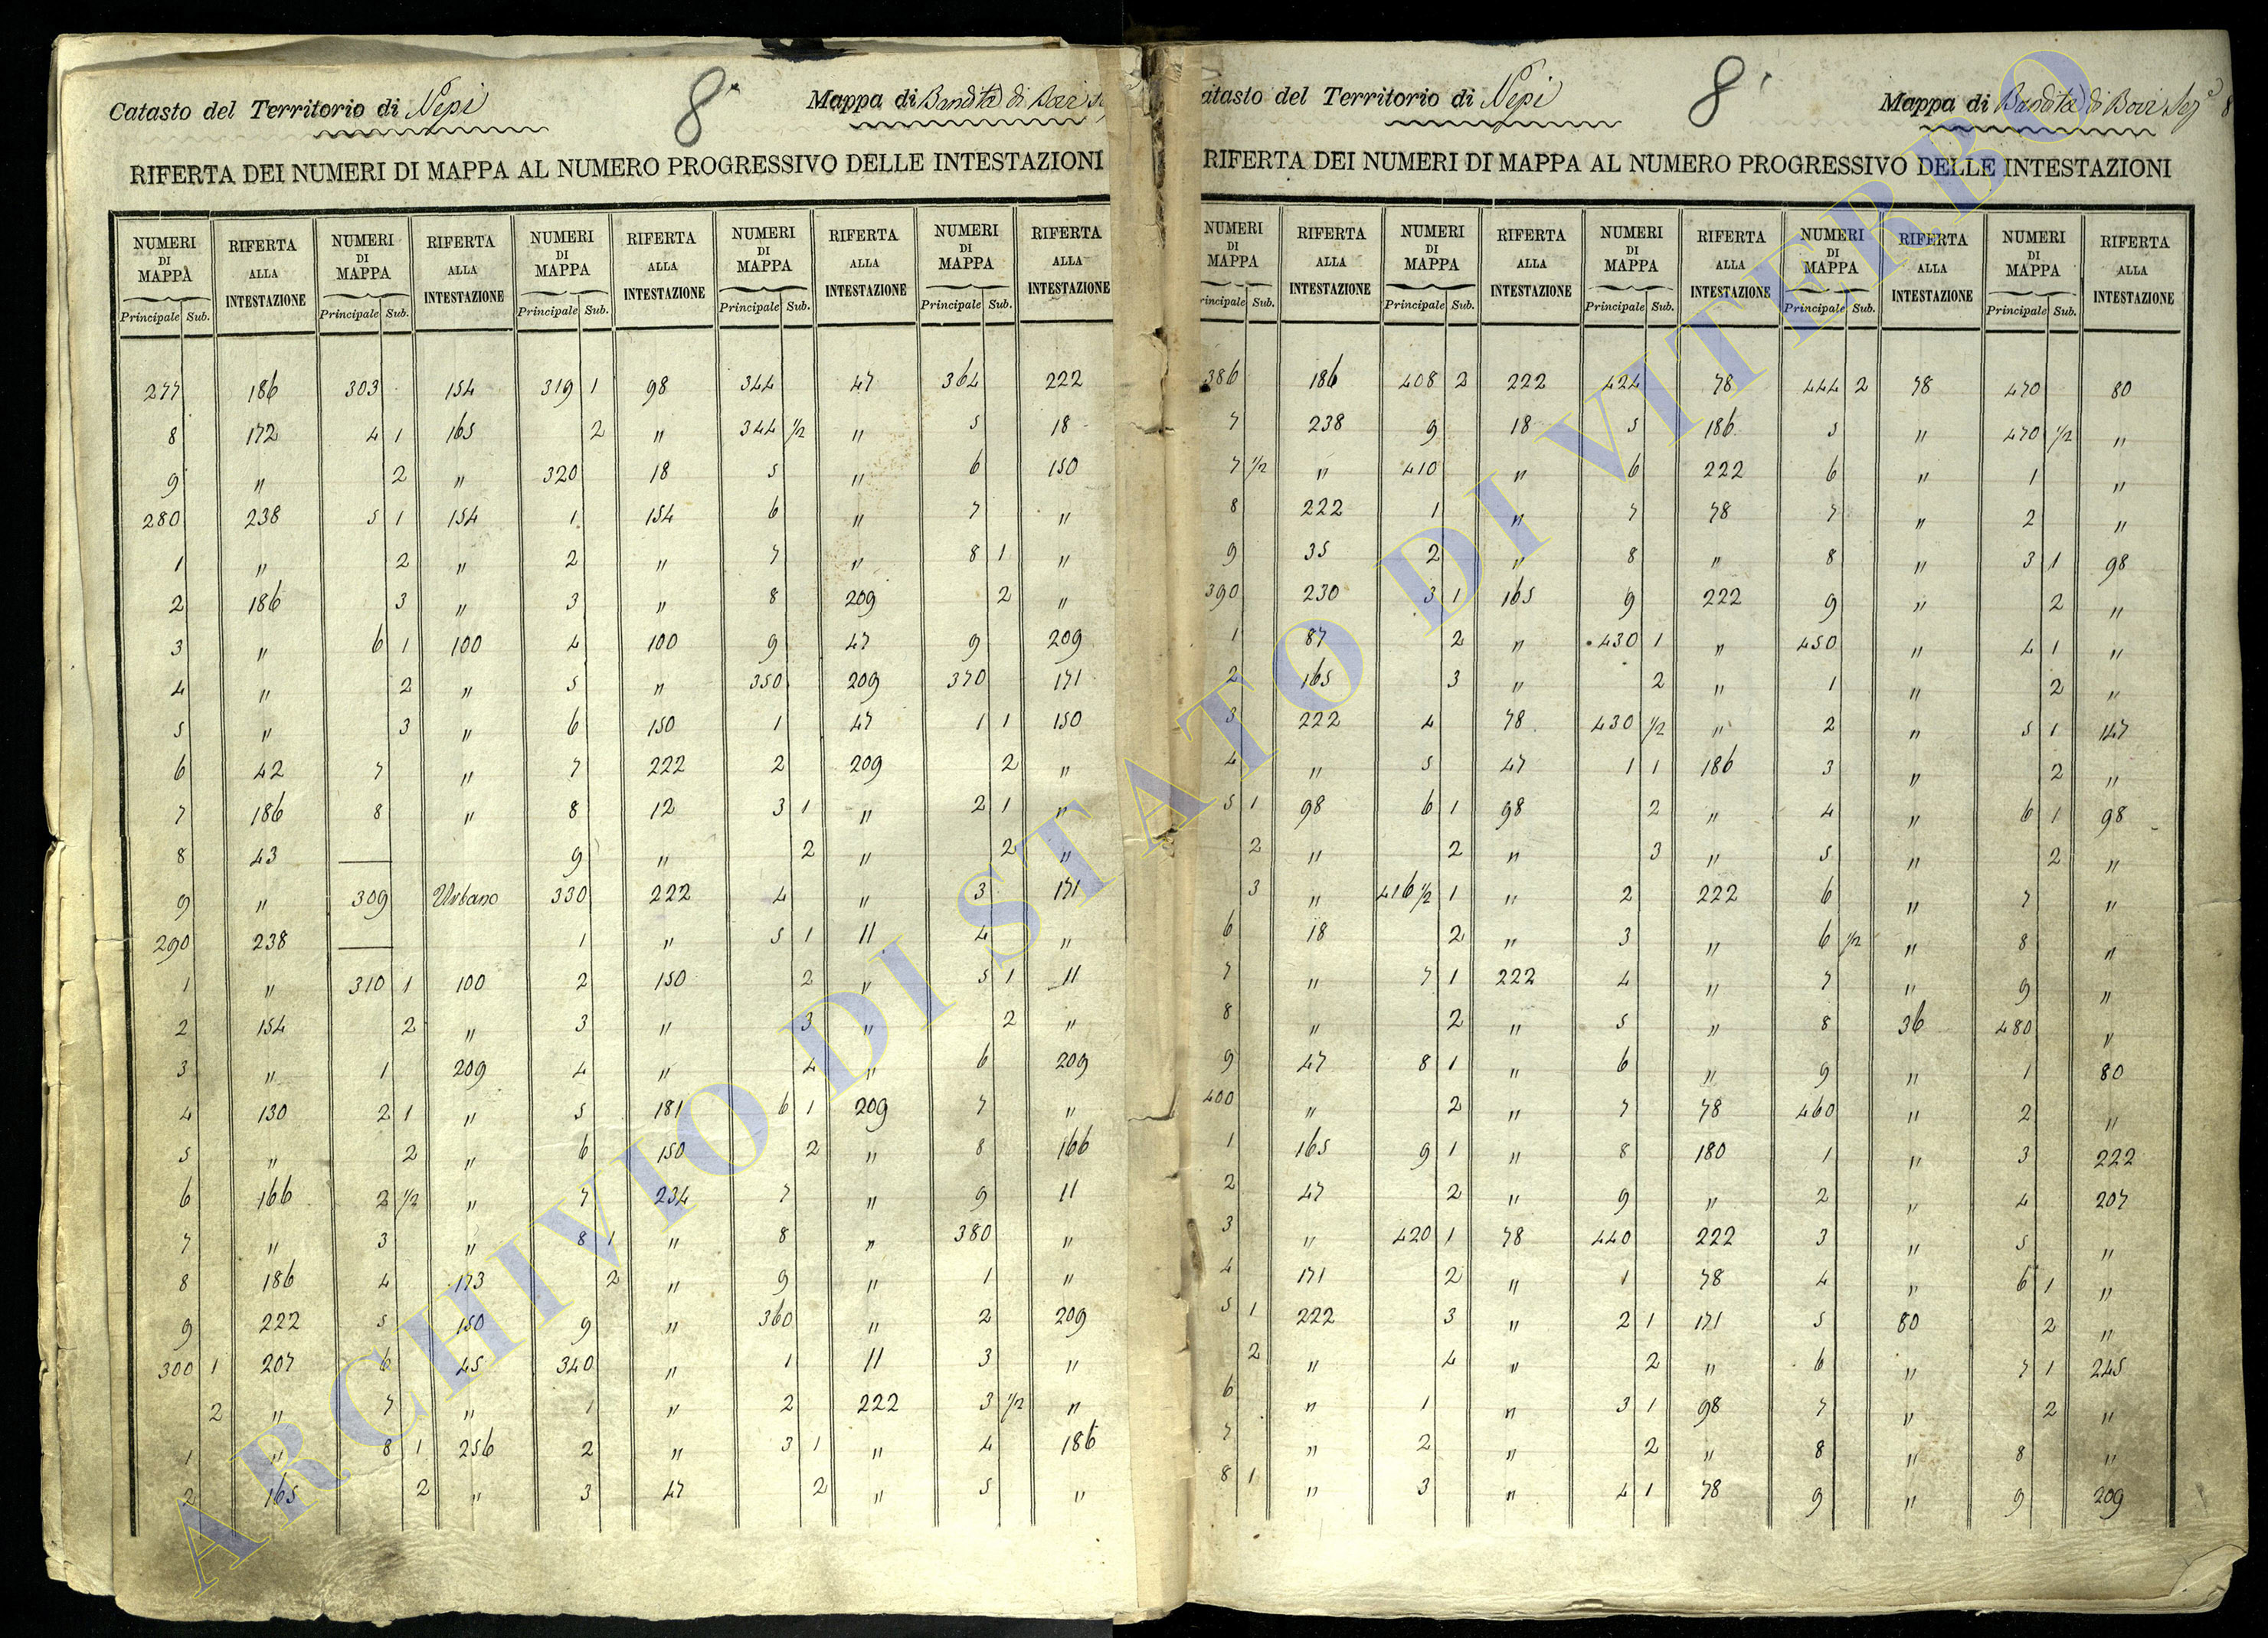 Catasto del Territorio di Nepi 8 Mappa di Bandita di Bovi
RIFERTA DEI NUMERI DI MAPPA AL NUMERO PROGRESSIVO DELLE INTESTAZIONI
NUMERI DI MAPPA RIFERTA ALLA INTESTAZIONE NUMERI DI MAPPA RIFERTA ALLA INTESTAZIONE NUMERI DI MAPPA RIFERTA ALLA INTESTAZIONE NUMERI DI MAPPA RIFERTA ALLA INTESTAZIONE NUMERI DI MAPPA RIFERTA ALLA INTESTAZIONE
Principale Sub. Principale Sub. Principale Sub. Principale Sub. Principale Sub.
277 186 303 154 319 1 98 344 47 364 222
8 172 4 1 165 2 " 344 1/2 " 5 18
9 " 2 " 320 18 5 " 6 150
280 238 5 1 154 1 154 6 " 7 "
1 " 2 " 2 " 7 " 8 1 "
2 186 3 " 3 " 8 209 2 "
3 " 6 1 100 4 100 9 47 9 209
4 " 2 " 5 " 350 209 370 171
5 " 3 " 6 150 1 47 1 1 150
6 42 7 " 7 222 2 209 2 "
7 186 8 " 8 12 3 1 " 2 1 "
8 43 — 9 " 2 " 2 "
9 " 309 Urbano 330 222 4 " 3 171
290 238 — 1 " 5 1 11 4 "
1 " 310 1 100 2 150 2 " 5 1 11
2 154 2 " 3 " 3 " 2 "
3 " 1 209 4 " 4 " 6 209
4 130 2 1 " 5 181 6 1 209 7 "
5 " 2 " 6 150 2 " 8 166
6 166 2 1/2 " 7 234 7 " 9 11
7 " 3 " 8 1 " 8 " 380 "
8 186 4 173 2 " 9 " 1 "
9 222 5 150 9 " 360 " 2 209
300 1 207 6 45 340 " 1 11 3 "
2 " 7 " 1 " 2 222 3 1/2 "
1 " 8 1 256 2 " 3 1 " 4 186
2 165 2 " 3 47 2 " 5 "
atasto del Territorio di Nepi 8 Mappa di Bandita di Bovi Sez. 8
RIFERTA DEI NUMERI DI MAPPA AL NUMERO PROGRESSIVO DELLE INTESTAZIONI
NUMERI DI MAPPA RIFERTA ALLA INTESTAZIONE NUMERI DI MAPPA RIFERTA ALLA INTESTAZIONE NUMERI DI MAPPA RIFERTA ALLA INTESTAZIONE NUMERI DI MAPPA RIFERTA ALLA INTESTAZIONE NUMERI DI MAPPA RIFERTA ALLA INTESTAZIONE
rincipale Sub. Principale Sub. Principale Sub. Principale Sub. Principale Sub.
386 186 408 2 222 424 78 444 2 78 470 80
7 238 9 18 5 186 5 " 470 1/2 "
7 1/2 " 410 " 6 222 6 " 1 "
8 222 1 " 7 78 7 " 2 "
9 35 2 " 8 " 8 " 3 1 98
390 230 3 1 165 9 222 9 " 2 "
1 87 2 " 430 1 " 450 " 4 1 "
2 165 3 " 2 " 1 " 2 "
3 222 4 78 430 1/2 " 2 " 5 1 147
4 " 5 47 1 1 186 3 " 2 "
5 1 98 6 1 98 2 " 4 " 6 1 98
2 " 2 " 3 " 5 " 2 "
3 " 416 1/2 1 " 2 222 6 " 7 "
6 18 2 " 3 " 6 1/2 " 8 "
7 " 7 1 222 4 " 7 " 9 "
8 " 2 " 5 " 8 36 480 "
9 47 8 1 " 6 " 9 " 1 80
400 " 2 " 7 78 460 " 2 "
1 165 9 1 " 8 180 1 " 3 222
2 47 2 " 9 " 2 " 4 207
3 " 420 1 78 440 222 3 " 5 "
4 171 2 " 1 78 4 " 6 1 "
5 1 222 3 " 2 1 171 5 80 2 "
2 " 4 " 2 " 6 " 7 1 245
6 " 1 " 3 1 98 7 " 2 "
7 " 2 " 2 " 8 " 8 "
8 1 " 3 " 4 1 78 9 " 9 209
ARCHIVIO DI STATO DI VITERBO